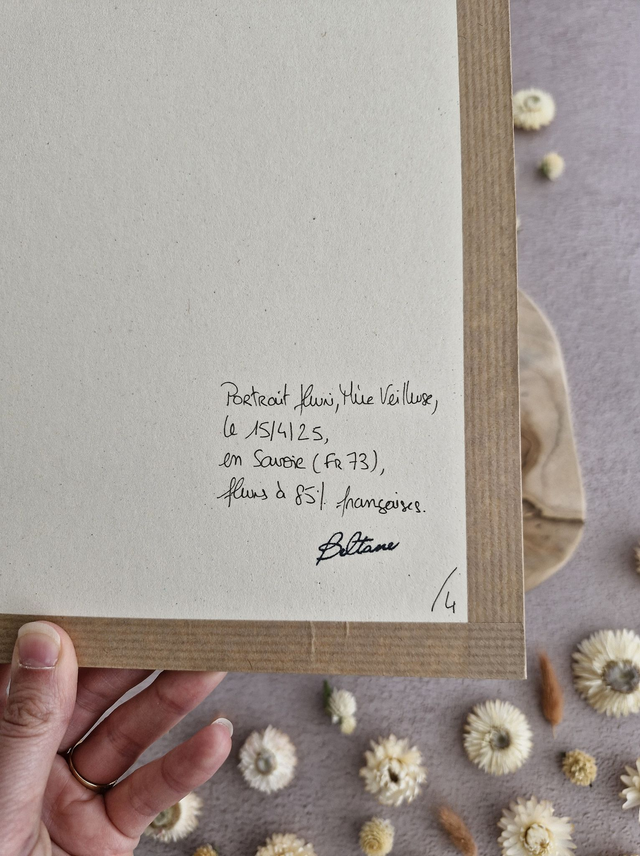 Portrait fleuri, Mère Veilleuse,
le 15/4/25,
en Savoie (FR 73),
fleurs à 85% françaises.
Beltane
/4